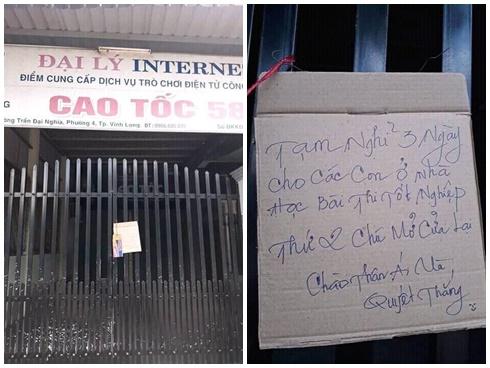 ĐẠI LÝ INTERNE
ĐIỂM CUNG CẤP DỊCH VỤ TRÒ CHƠI ĐIỆN TỬ CÔN
NG CAO TỐC 58
ờng Trần Đại Nghĩa, Phường 4, Tp. Vĩnh Long. ĐT:
Số ĐKKD
Tạm Nghỉ 3 Ngày
cho Các Con ở Nhà
Học Bài Thi Tốt Nghiệp
Thứ 2 Chú Mở Cửa Lại
Chào Thân Ái Và
Quyết Thắng